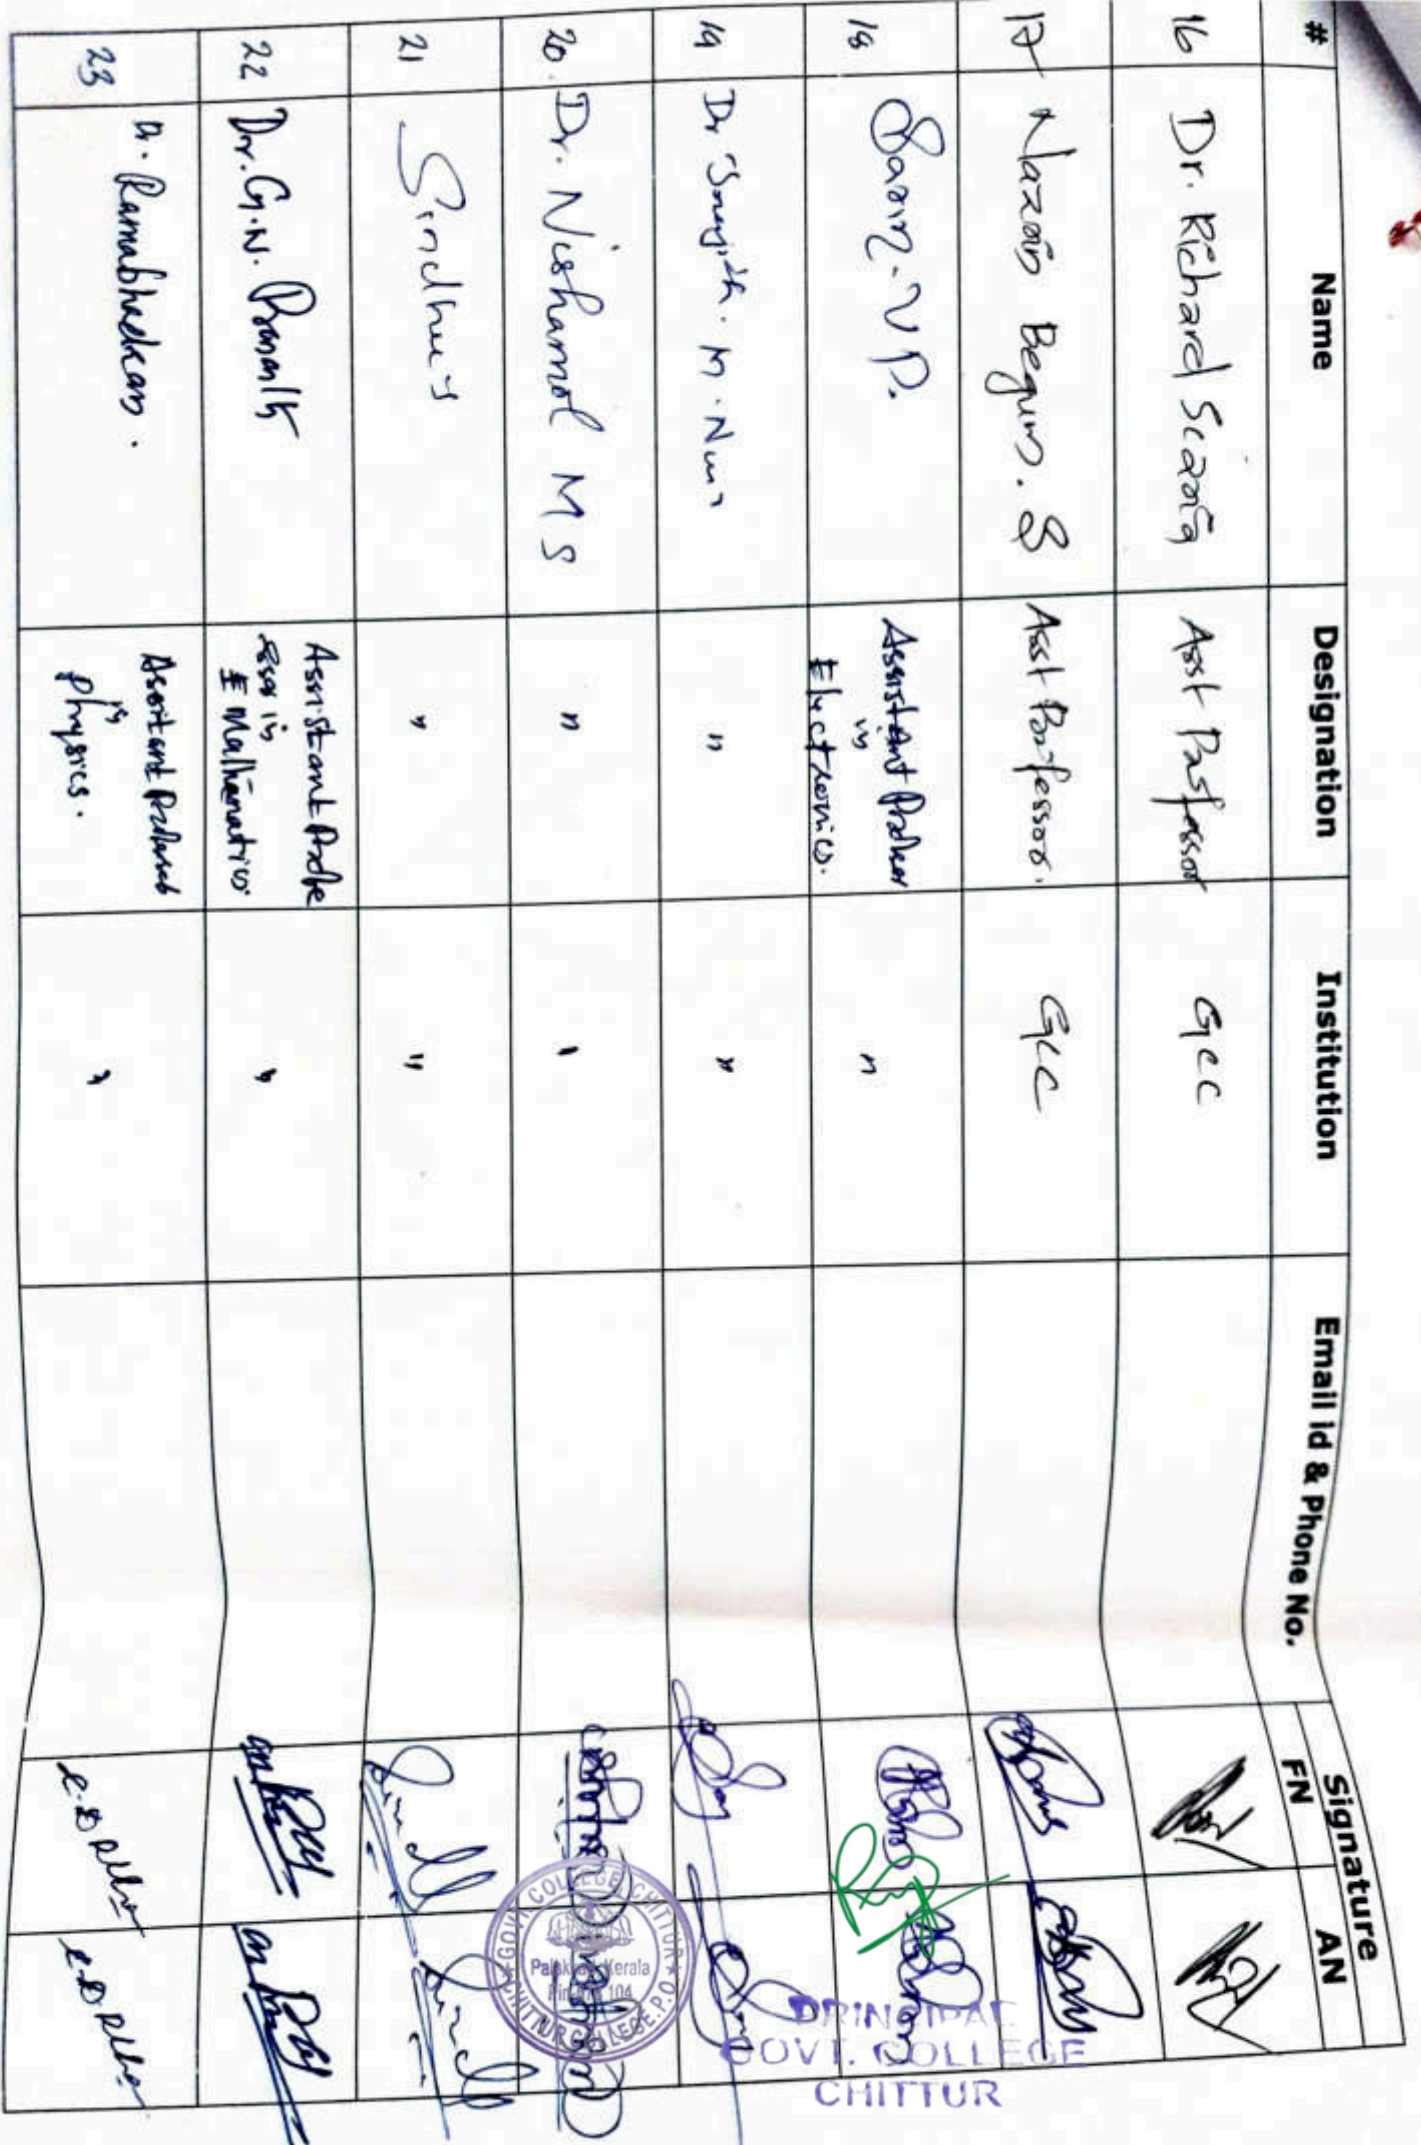 # Name Designation Institution Email id & Phone No. Signature
FN AN
16 Dr. Richard Scaria Asst Professor GCC
17 Nazain Begum. S Asst Professor. GCC
18 Sarin. V P. Assistant in Electronics. "
19 Dr M. " "
20. Dr. Nishamol M S " "
21 Sindhu S " "
22 Dr. G.N. Prasanth Assistant Profe
ssor in
Mathematics "
23 Ramabhadran. Assistant
in
Physics. "
GOVT. COLLEGE CHITTUR
Palakkad Kerala
Pin 104
CHITTUR COLLEGE.P.O.
PRINCIPAL
GOVT. COLLEGE
CHITTUR